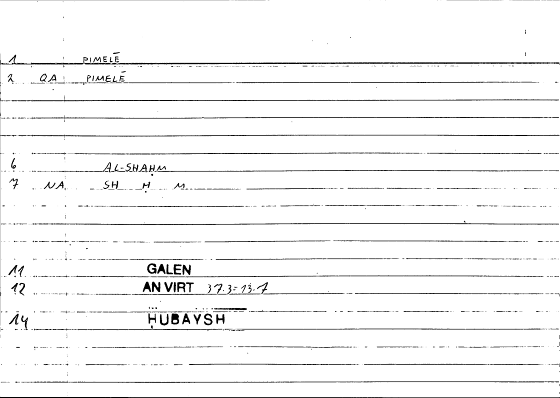 1 PIMELĒ
2 QA PIMELĒ
6 AL-SHAḤM
7 NA SH Ḥ M
11 GALEN
12 AN VIRT 37.3=13.7
...
14 ḤUBAYSH